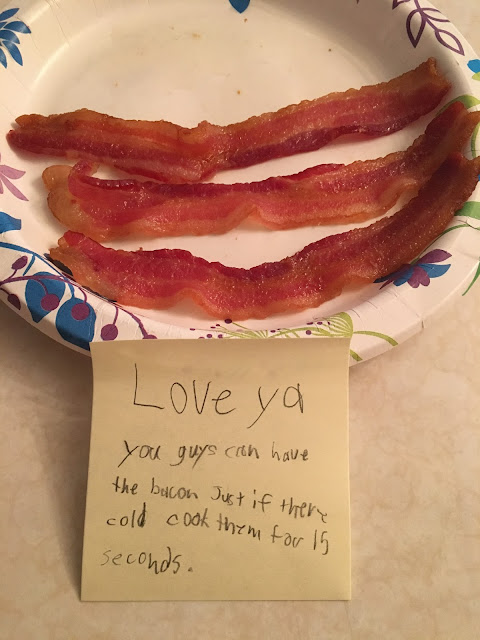 Love ya
you guys can have
the bacon Just if there
cold cook them for 15
seconds.